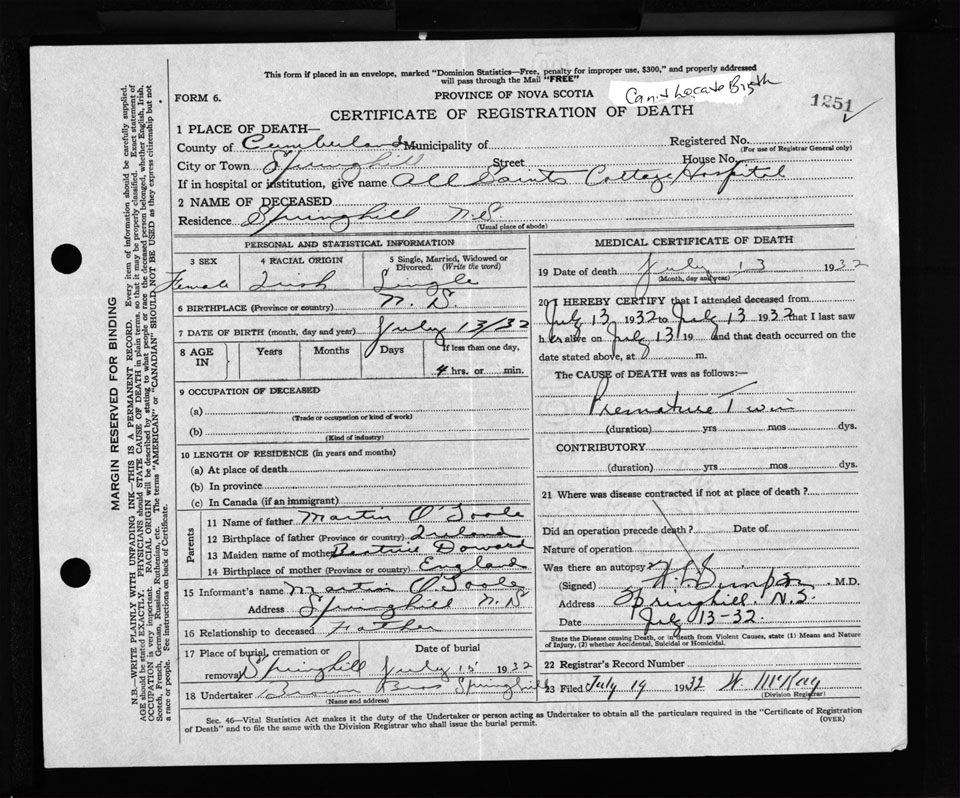 This form if placed in an envelope, marked "Dominion Statistics—Free, penalty for improper use, $300," and properly addressed
will pass through the Mail "FREE"
FORM 6.
PROVINCE OF NOVA SCOTIA
Can't Locate Birth
1251
CERTIFICATE OF REGISTRATION OF DEATH
1 PLACE OF DEATH—
County of Cumberland Municipality of
Registered No.
(For use of Registrar General only)
City or Town Springhill Street House No.
If in hospital or institution, give name All Saints Cottage Hospital
2 NAME OF DECEASED
Residence Springhill N.S.
(Usual place of abode)
PERSONAL AND STATISTICAL INFORMATION
3 SEX
Female
4 RACIAL ORIGIN
Irish
5 Single, Married, Widowed or
Divorced. (Write the word)
Single
6 BIRTHPLACE (Province or country) N. S.
7 DATE OF BIRTH (month, day and year) July 13/32
8 AGE
IN
Years
Months
Days
If less than one day,
4 hrs. or min.
9 OCCUPATION OF DECEASED
(a)
(Trade or occupation or kind of work)
(b)
(Kind of industry)
10 LENGTH OF RESIDENCE (in years and months)
(a) At place of death
(b) In province
(c) In Canada (if an immigrant)
Parents
11 Name of father Martin O'Toole
12 Birthplace of father (Province or country) Ireland
13 Maiden name of mother Beatrice Doward
14 Birthplace of mother (Province or country) England
15 Informant's name Martin O'Toole
Address Springhill N.S
16 Relationship to deceased Father
17 Place of burial, cremation or
removal Springhill
Date of burial
July 15 1932
18 Undertaker Brown Bros Springhill
(Name and address)
MEDICAL CERTIFICATE OF DEATH
19 Date of death July 13 1932
(Month, day and year)
20 I HEREBY CERTIFY that I attended deceased from
July 13 1932 to July 13 1932 that I last saw
her alive on July 13 19 and that death occurred on the
date stated above, at m.
The CAUSE of DEATH was as follows:—
Premature Twin
(duration) yrs mos dys.
CONTRIBUTORY
(duration) yrs mos dys.
21 Where was disease contracted if not at place of death?
Did an operation precede death? Date of
Nature of operation
Was there an autopsy
(Signed) M.D.
Address Springhill. N.S.
Date July 13-32.
State the Disease causing Death, or in death from Violent Causes, state (1) Means and Nature
of Injury, (2) whether Accidental, Suicidal or Homicidal.
22 Registrar's Record Number
23 Filed July 19 1932 W. McKay
Division Registrar)
Sec. 46—Vital Statistics Act makes it the duty of the Undertaker or person acting as Undertaker to obtain all the particulars required in the "Certificate of Registration
of Death" and to file the same with the Division Registrar who shall issue the burial permit.
(OVER)
MARGIN RESERVED FOR BINDING
N.B.—WRITE PLAINLY WITH UNFADING INK—THIS IS A PERMANENT RECORD. Every item of information should be carefully supplied.
AGE should be stated EXACTLY. PHYSICIANS should STATE CAUSE OF DEATH in plain terms, so that it may be properly classified. Exact statement of
OCCUPATION is very important. RACIAL ORIGIN will be described by stating to what people or race the deceased person belonged, whether English, Irish,
Scotch, French, German, Russian, Ruthenian, etc. The terms "AMERICAN" or "CANADIAN" SHOULD NOT BE USED as they express citizenship but not
a race or people. See instructions on back of Certificate.